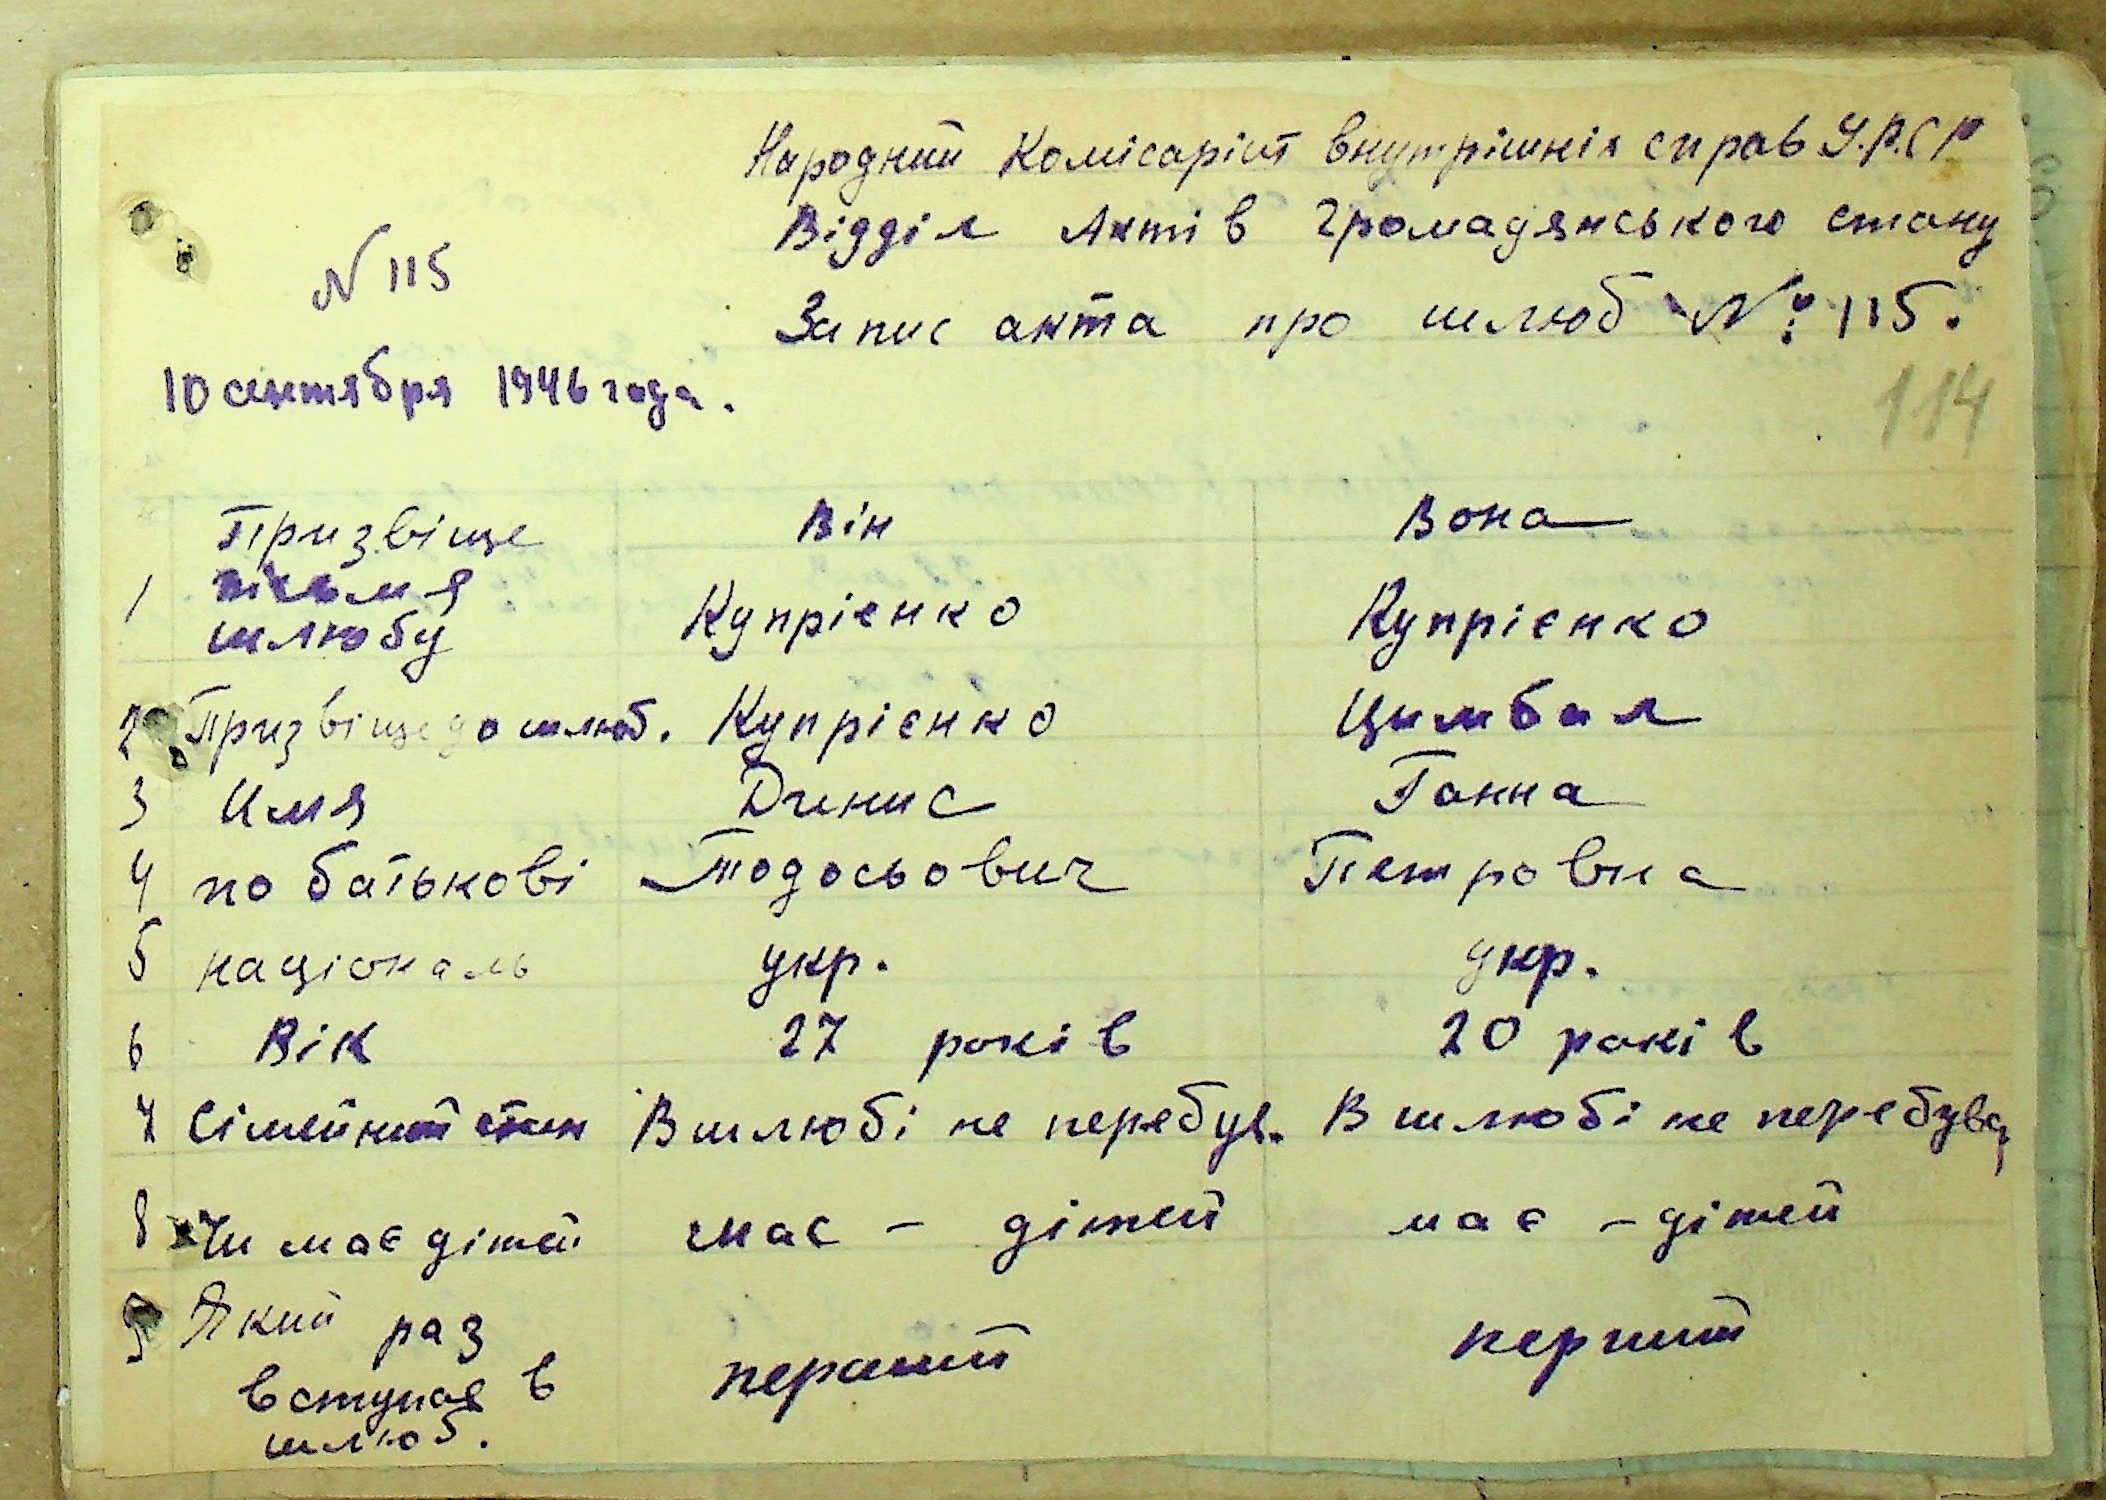 Народний Комісаріат внутрішніх справ У.Р.С.Р
Відділ Актів громадянського стану
N 115
Запис акта про шлюб №: 115.
10 сентября 1946 года.
114
Призвіще Він Вона
1 після шлюбу Купрієнко Купрієнко
2 Призвіще до шлюб. Купрієнко Цимбал
3 Имя Денис Ганна
4 по батькові Тодосьович Петровна
5 національ укр. укр.
6 Вік 27 років 20 років
7 Сімейний стан В шлюбі не перебув. В шлюбі не перебува
8 Чи має дітей має - дітей має - дітей
9 Який раз
вступая в перший перший
шлюб.